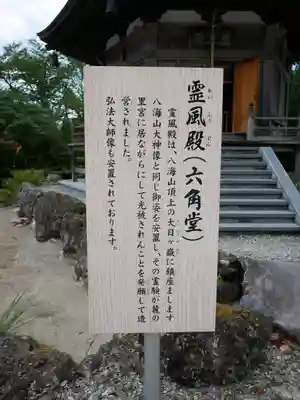 霊風殿(六角堂)
れい ふう でん
霊風殿は、八海山頂上の大日ヶ嶽に鎮座まします
八海山大神像と同じ御姿を安置し、その霊験が麓の
里宮に居ながらにして光被されんことを発願して造
営されました。
弘法大師像も安置されております。